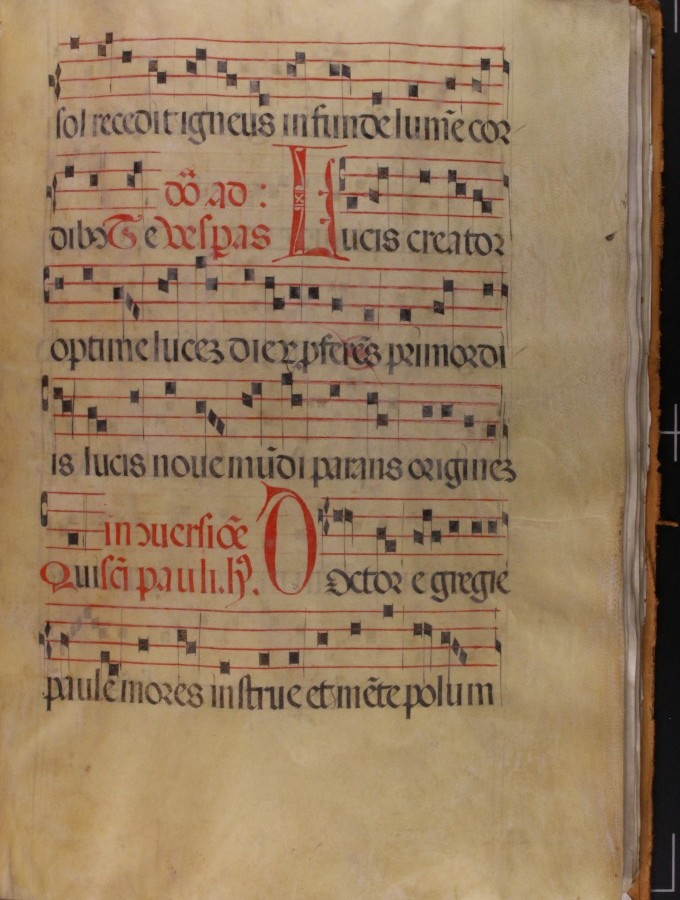 sol recedit igneus infunde lumīe cor
dō ad :
dibꝫ Te vespas Lucis creator
optime lucez dierꝫ pferēs primordi
is lucis noue mūdi parans originez
in ɔuersiōe
Qui scī pauli. hȳ. Doctor egregie
paule mores instrue et mēte polum